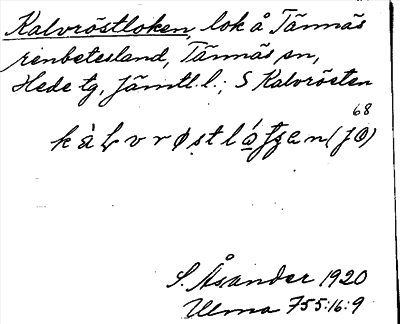 Kalvröstloken, lok å Tännäs
renbetesland, Tännäs sn,
Hede tg, Jämtl. l.; S Kalvrösten
68
S. Åsander 1920
Ulma 755:16:9